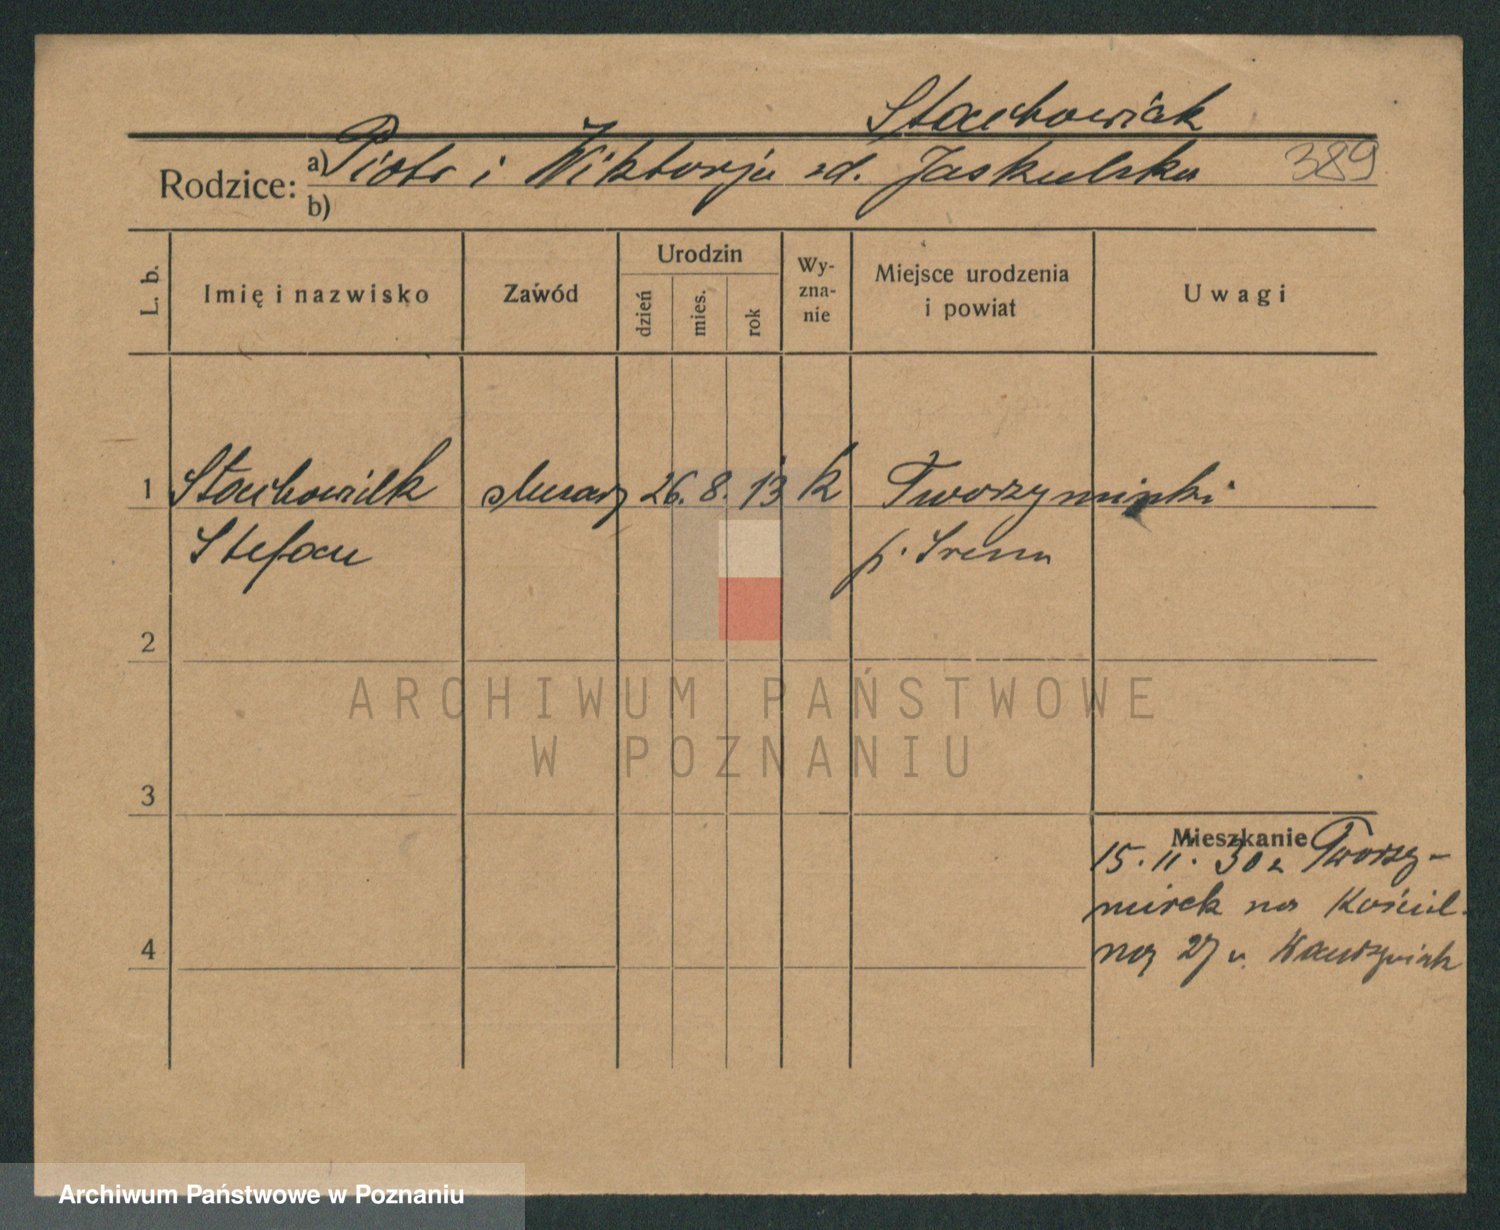 Stachowiak
Rodzice: a) Piotr i Wiktorja zd. Jaskulska 389
b)
L. b. Imię i nazwisko Zawód Urodzin dzień mies. rok Wyznanie Miejsce urodzenia i powiat Uwagi
1 Stachowiak ślusarz 26. 8. 13 k Tworzymirki
Stefan p. Śrem
2
ARCHIWUM PAŃSTWOWE
W POZNANIU
3
Mieszkanie
15. 11. 30 z Tworzy-
mirek na Kościel-
ną 27 u.
4
Archiwum Państwowe w Poznaniu